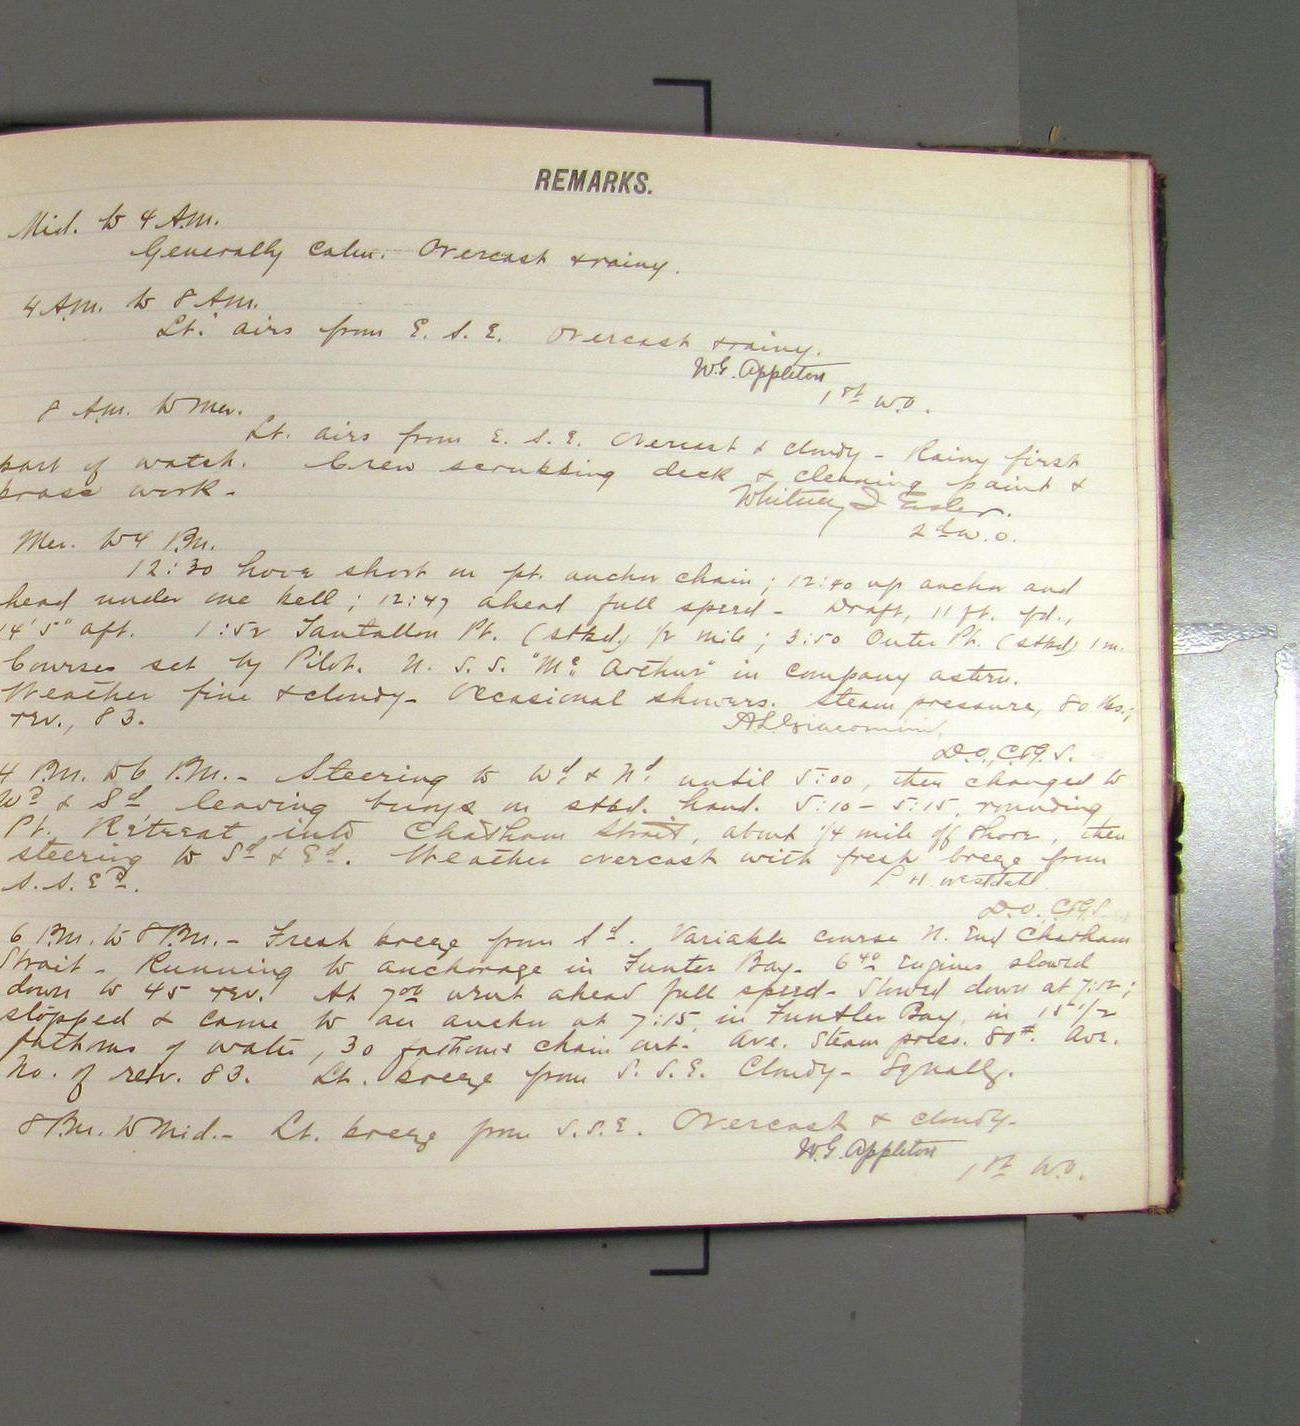 REMARKS.
Mid. to 4 A.m.
Generally calm. Overcast & rainy.
4 A.m. to 8 A.m.
Lt. airs from E. S. E. Overcast & rainy.
W.G. Appleton
1st W.O.
8 A.m. to Mer.
Lt. airs from E. S. E. Overcast & cloudy - Rainy first
part of watch. Crew scrubbing deck & cleaning paint &
brass work -
Whitney I
2d W.O.
Mer. to 4 P.m.
12:30 hove short on pt. anchor chain; 12:40 up anchor and
head under one bell; 12:47 ahead full speed - Draft, 11 ft. fd.,
14' 5" aft. 1:52 Tantallon Pt. (stbd) 1/2 mile; 3:50 Outer Pt. (stbd) 1 m.
Courses set by Pilot. U. S. S. "Mc Arthur" in company astern.
Weather fine & cloudy - Occasional showers. Steam pressure, 80 lbs.;
rev., 83.
A L Giacomini,
D.O., C&G.S.
4 P.m. to 6 P.m. - Steering to Wd & Nd until 5:00, then changed to
Wd & Sd leaving buoys on stbd. hand. 5:10 - 5:15, rounding
Pt. Retreat into Chatham Strait, about 1/4 mile off shore, then
steering to Sd & Ed. Weather overcast with fresh breeze from
S. S. Ed.
L H Westdahl
D.O., C&G.S.
6 P.m. to 8 P.m. - Fresh breeze from Sd. Variable course N. End Chatham
Strait - Running to anchorage in Funter Bay - 6 40 Engines slowed
down to 45 rev. At 7 00 went ahead full speed - Slowed down at 7:12;
stopped & came to an anchor at 7:15, in Funtler Bay, in 15 1/2
fathoms of water, 30 fathoms chain out - Ave. Steam press. 80#. Ave.
No. of rev. 83. Lt. breeze from S. S. E. Cloudy - Squally.
8 P.m. to Mid. - Lt. breeze from S. S. E. Overcast & cloudy -
W.G. Appleton
1st W.O.